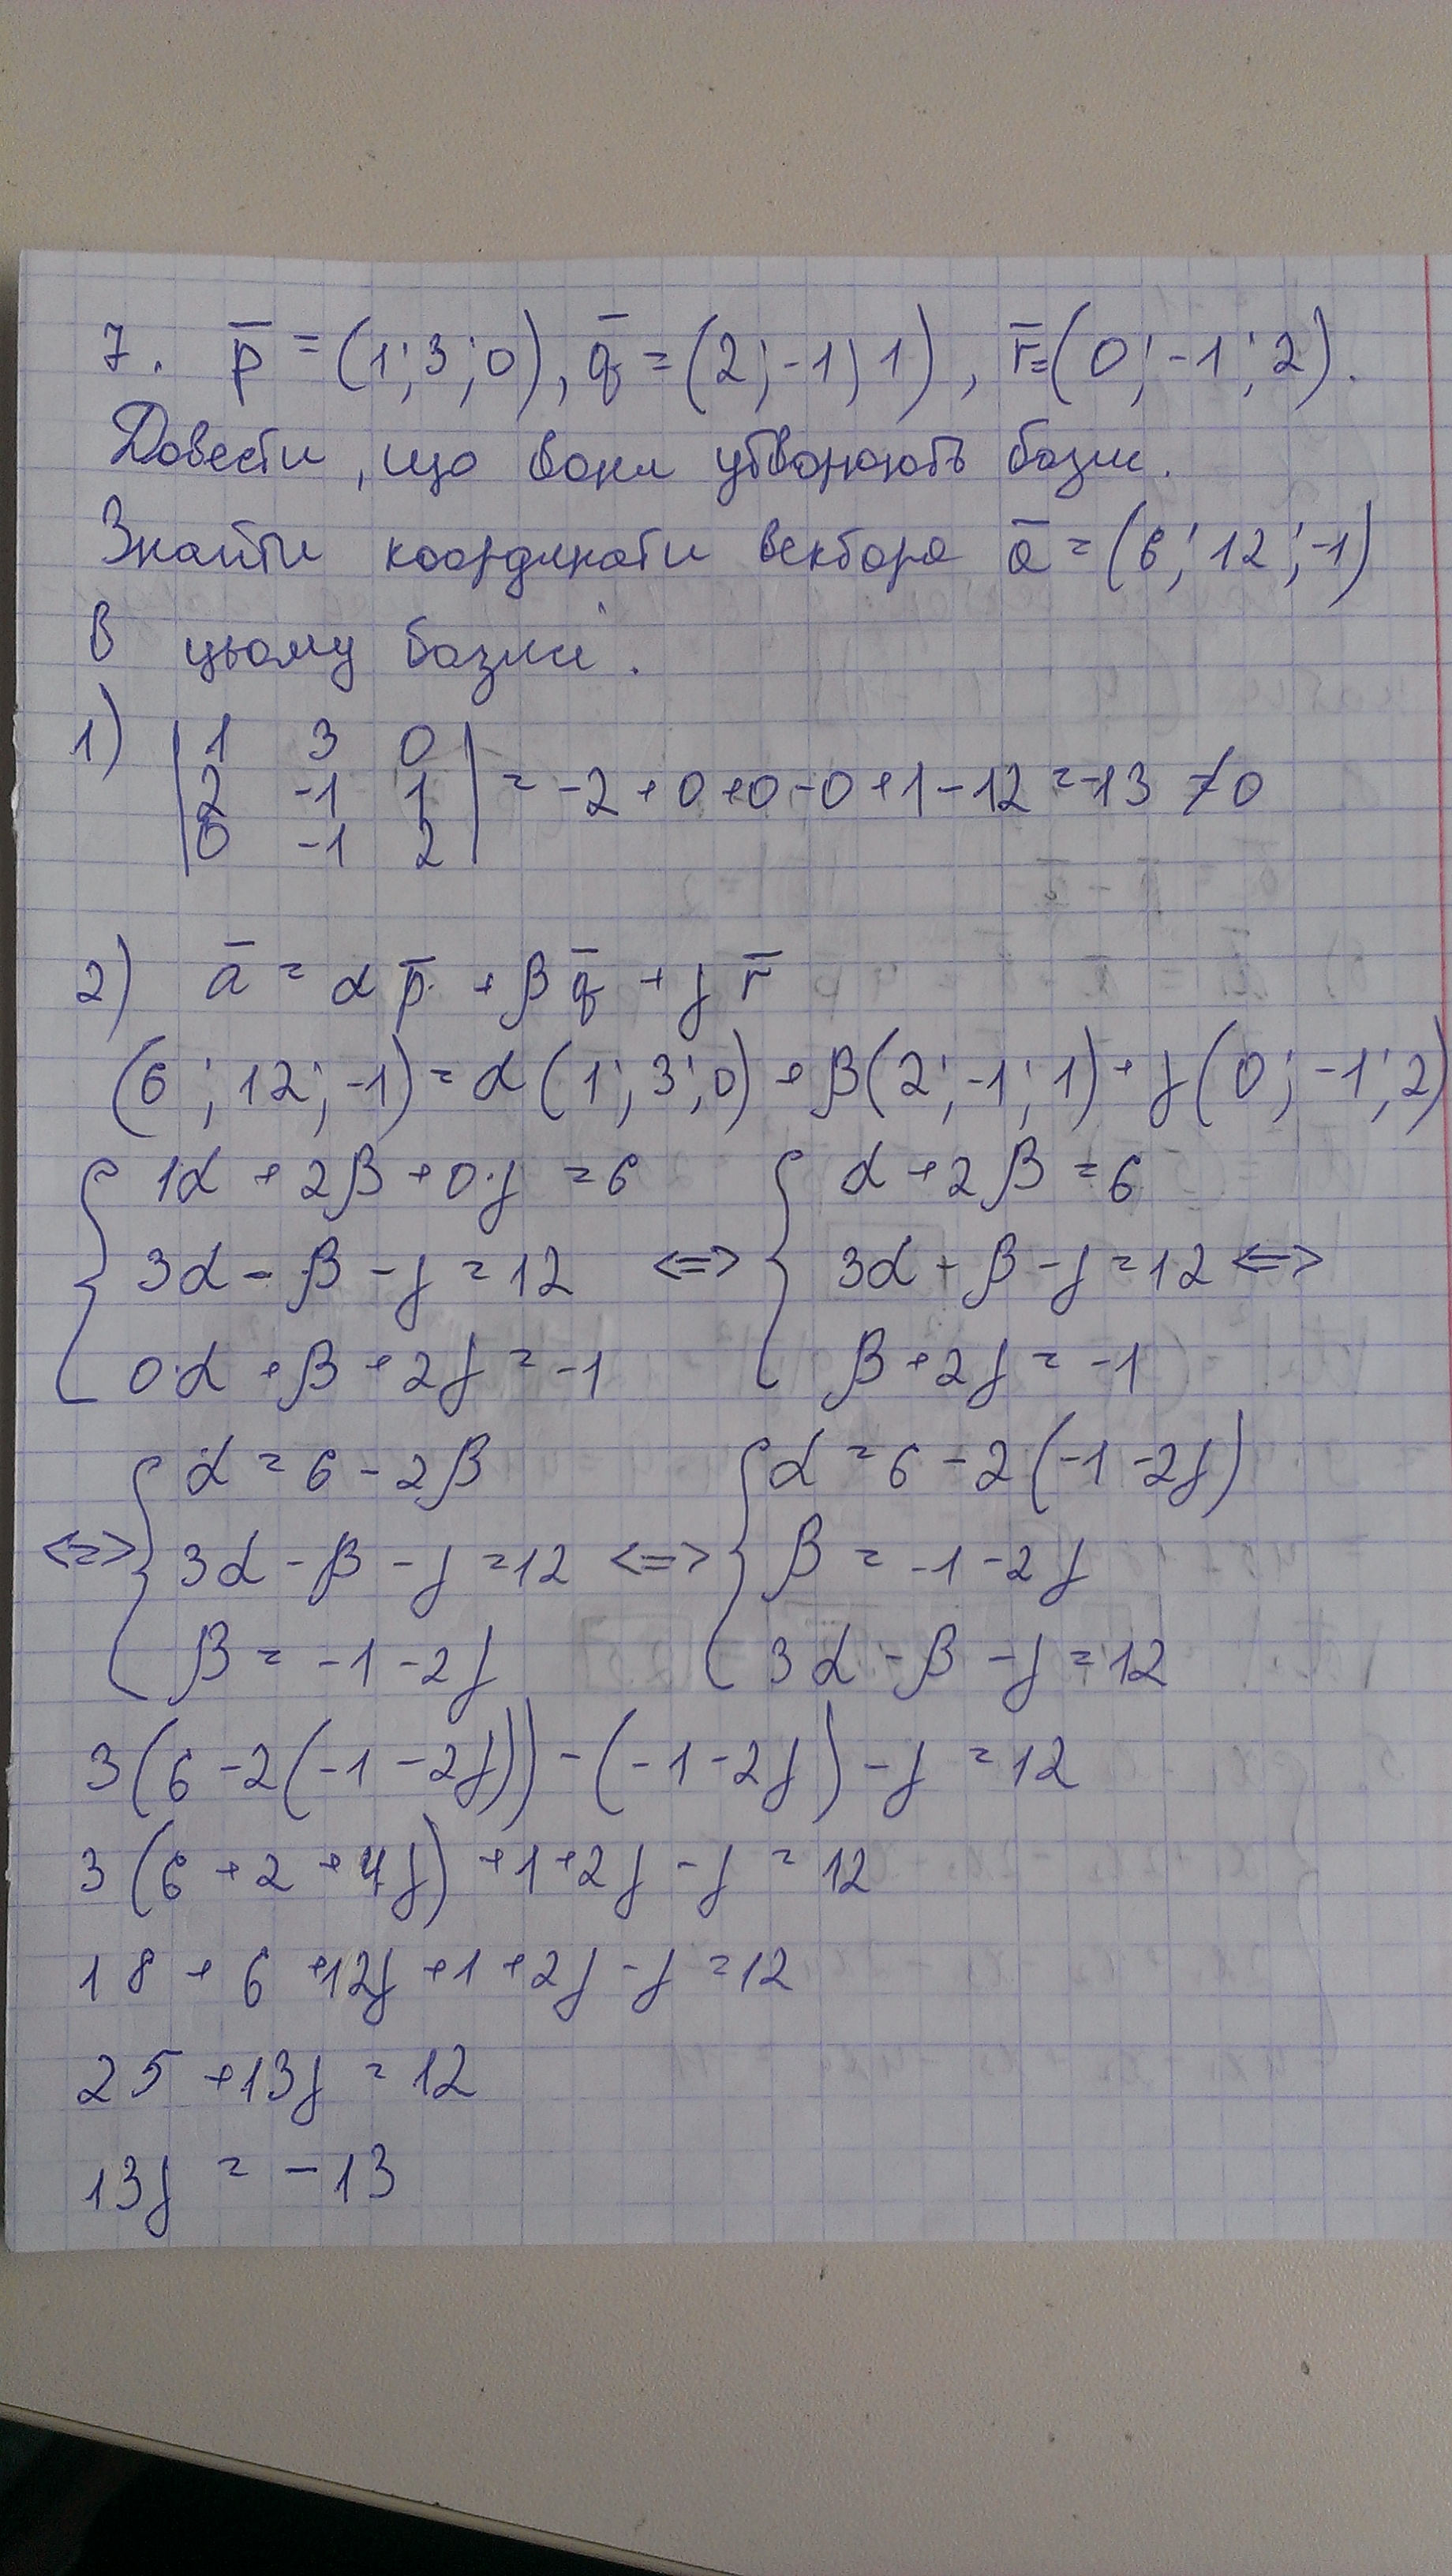 7. p̄ = (1; 3; 0), q̄ = (2; -1; 1), r̄ = (0; -1; 2).
Довести, що вони утворюють базис.
Знайти координати вектора ā = (6; 12; -1)
в цьому базисі.
1) |1 3 0; 2 -1 1; 0 -1 2| = -2 + 0 + 0 - 0 + 1 - 12 = -13 ≠ 0
2) ā = αp̄ + βq̄ + γr̄
(6; 12; -1) = α(1; 3; 0) + β(2; -1; 1) + γ(0; -1; 2)
{ 1α + 2β + 0·γ = 6 { α + 2β = 6
3α - β - γ = 12 <=> 3α - β - γ = 12 <=>
0·α + β + 2γ = -1 β + 2γ = -1
{ α = 6 - 2β { α = 6 - 2(-1 - 2γ)
<=> 3α - β - γ = 12 <=> β = -1 - 2γ
β = -1 - 2γ 3α - β - γ = 12
3(6 - 2(-1 - 2γ)) - (-1 - 2γ) - γ = 12
3(6 + 2 + 4γ) + 1 + 2γ - γ = 12
18 + 6 + 12γ + 1 + 2γ - γ = 12
25 + 13γ = 12
13γ = -13